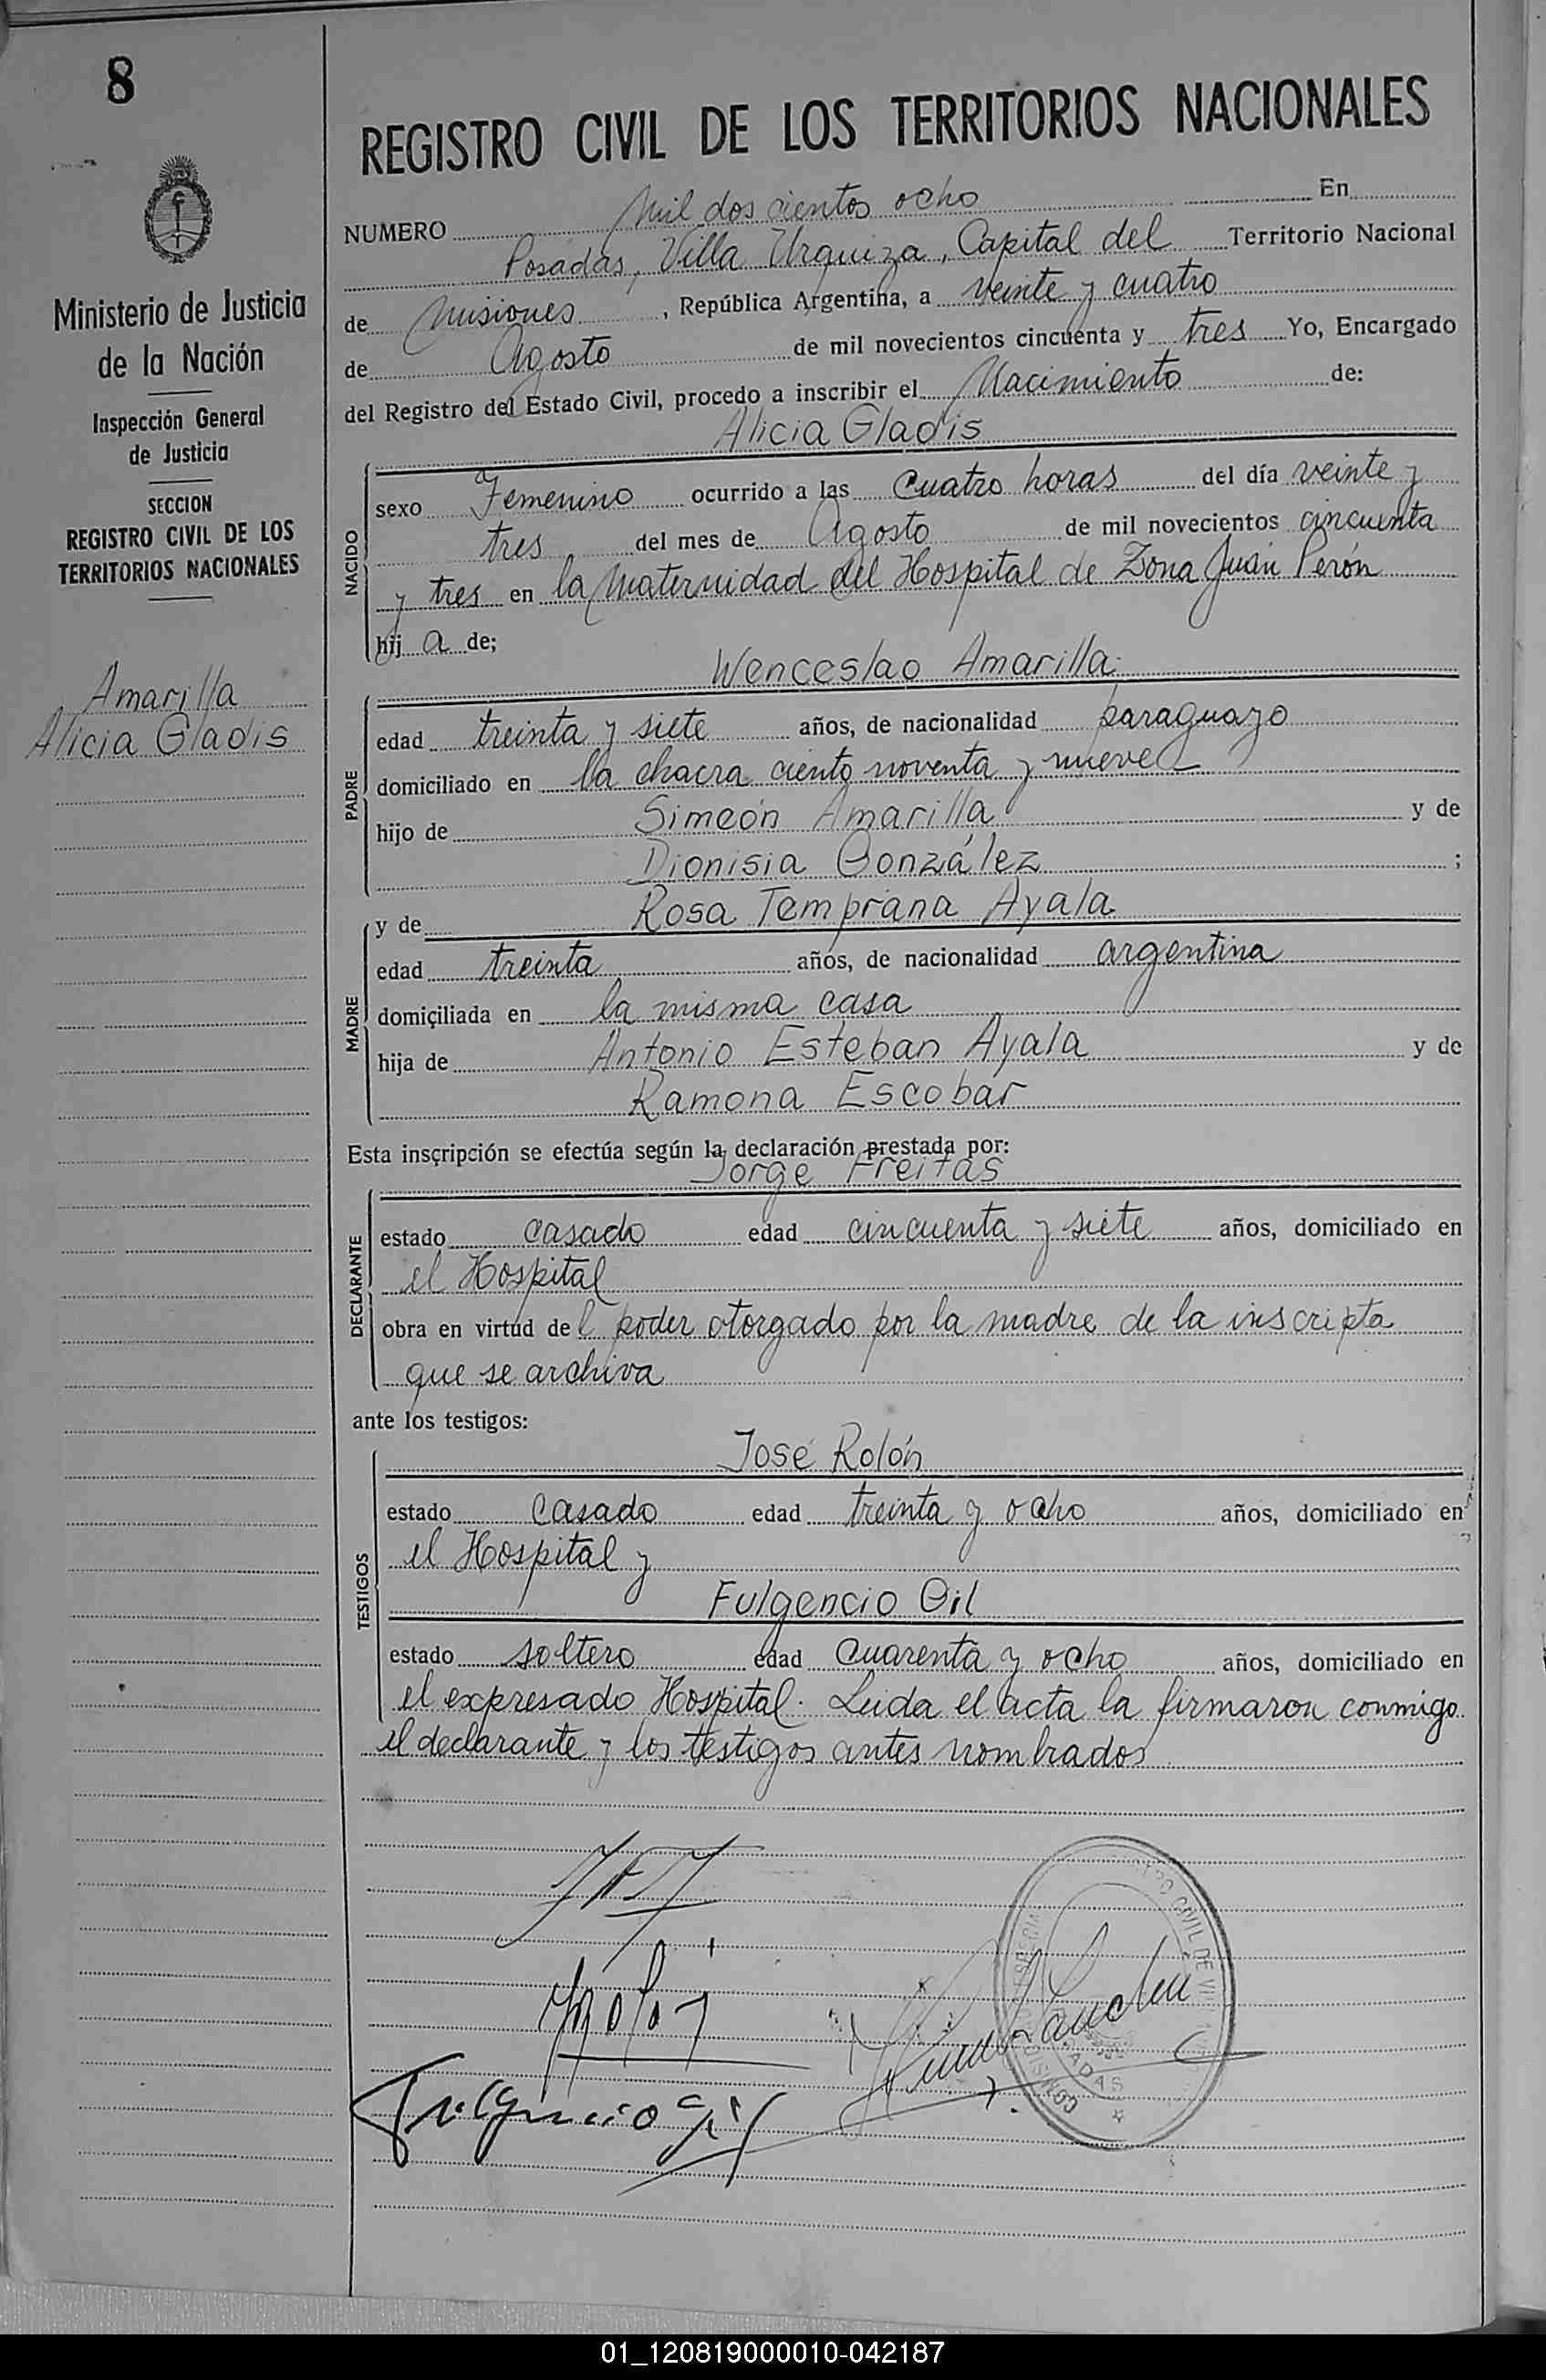 8
Ministerio de Justicia
de la Nación
Inspección General
de Justicia
SECCION
REGISTRO CIVIL DE LOS
TERRITORIOS NACIONALES
Amarilla
Alicia Gladis
REGISTRO CIVIL DE LOS TERRITORIOS NACIONALES
NUMERO Mil dos cientos ocho En
Posadas, Villa Urquiza, Capital del Territorio Nacional
de Misiones, República Argentina, a veinte y cuatro
de Agosto de mil novecientos cincuenta y tres Yo, Encargado
del Registro del Estado Civil, procedo a inscribir el Nacimiento de:
Alicia Gladis
NACIDO
sexo Femenino ocurrido a las cuatro horas del día veinte y
tres del mes de Agosto de mil novecientos cincuenta
y tres en la Maternidad del Hospital de Zona Juan Perón
hij a de;
Wenceslao Amarilla
PADRE
edad treinta y siete años, de nacionalidad paraguayo
domiciliado en la chacra ciento noventa y nueve
hijo de Simeón Amarilla y de
Dionisia González ;
y de Rosa Temprana Ayala
MADRE
edad treinta años, de nacionalidad argentina
domiciliada en la misma casa
hija de Antonio Esteban Ayala y de
Ramona Escobar
Esta inscripción se efectúa según la declaración prestada por:
Jorge Freitas
DECLARANTE
estado casado edad cincuenta y siete años, domiciliado en
el Hospital
obra en virtud del poder otorgado por la madre de la inscripta
que se archiva
ante los testigos:
José Rolón
TESTIGOS
estado casado edad treinta y ocho años, domiciliado en
el Hospital y
Fulgencio Gil
estado soltero edad cuarenta y ocho años, domiciliado en
el expresado Hospital. Leida el acta la firmaron conmigo
el declarante y los testigos antes nombrados
Fulgencio Gil
01_120819000010-042187